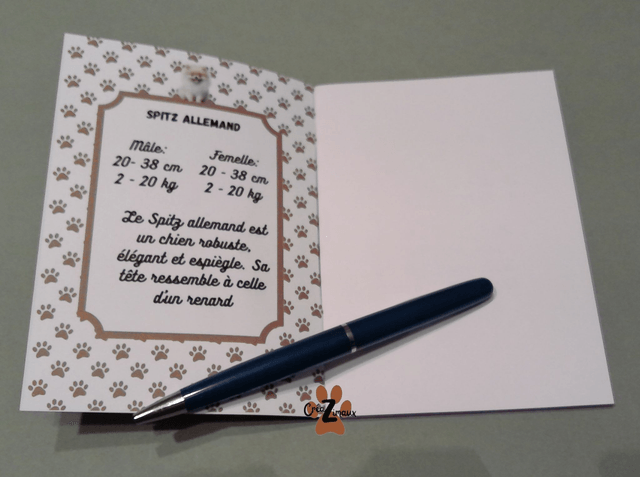 SPITZ ALLEMAND
Mâle:
20- 38 cm
2 - 20 kg
Femelle:
20 - 38 cm
2 - 20 kg
Le Spitz allemand est
un chien robuste,
élégant et espiègle. Sa
tête ressemble à celle
d'un renard
CréaZimaux